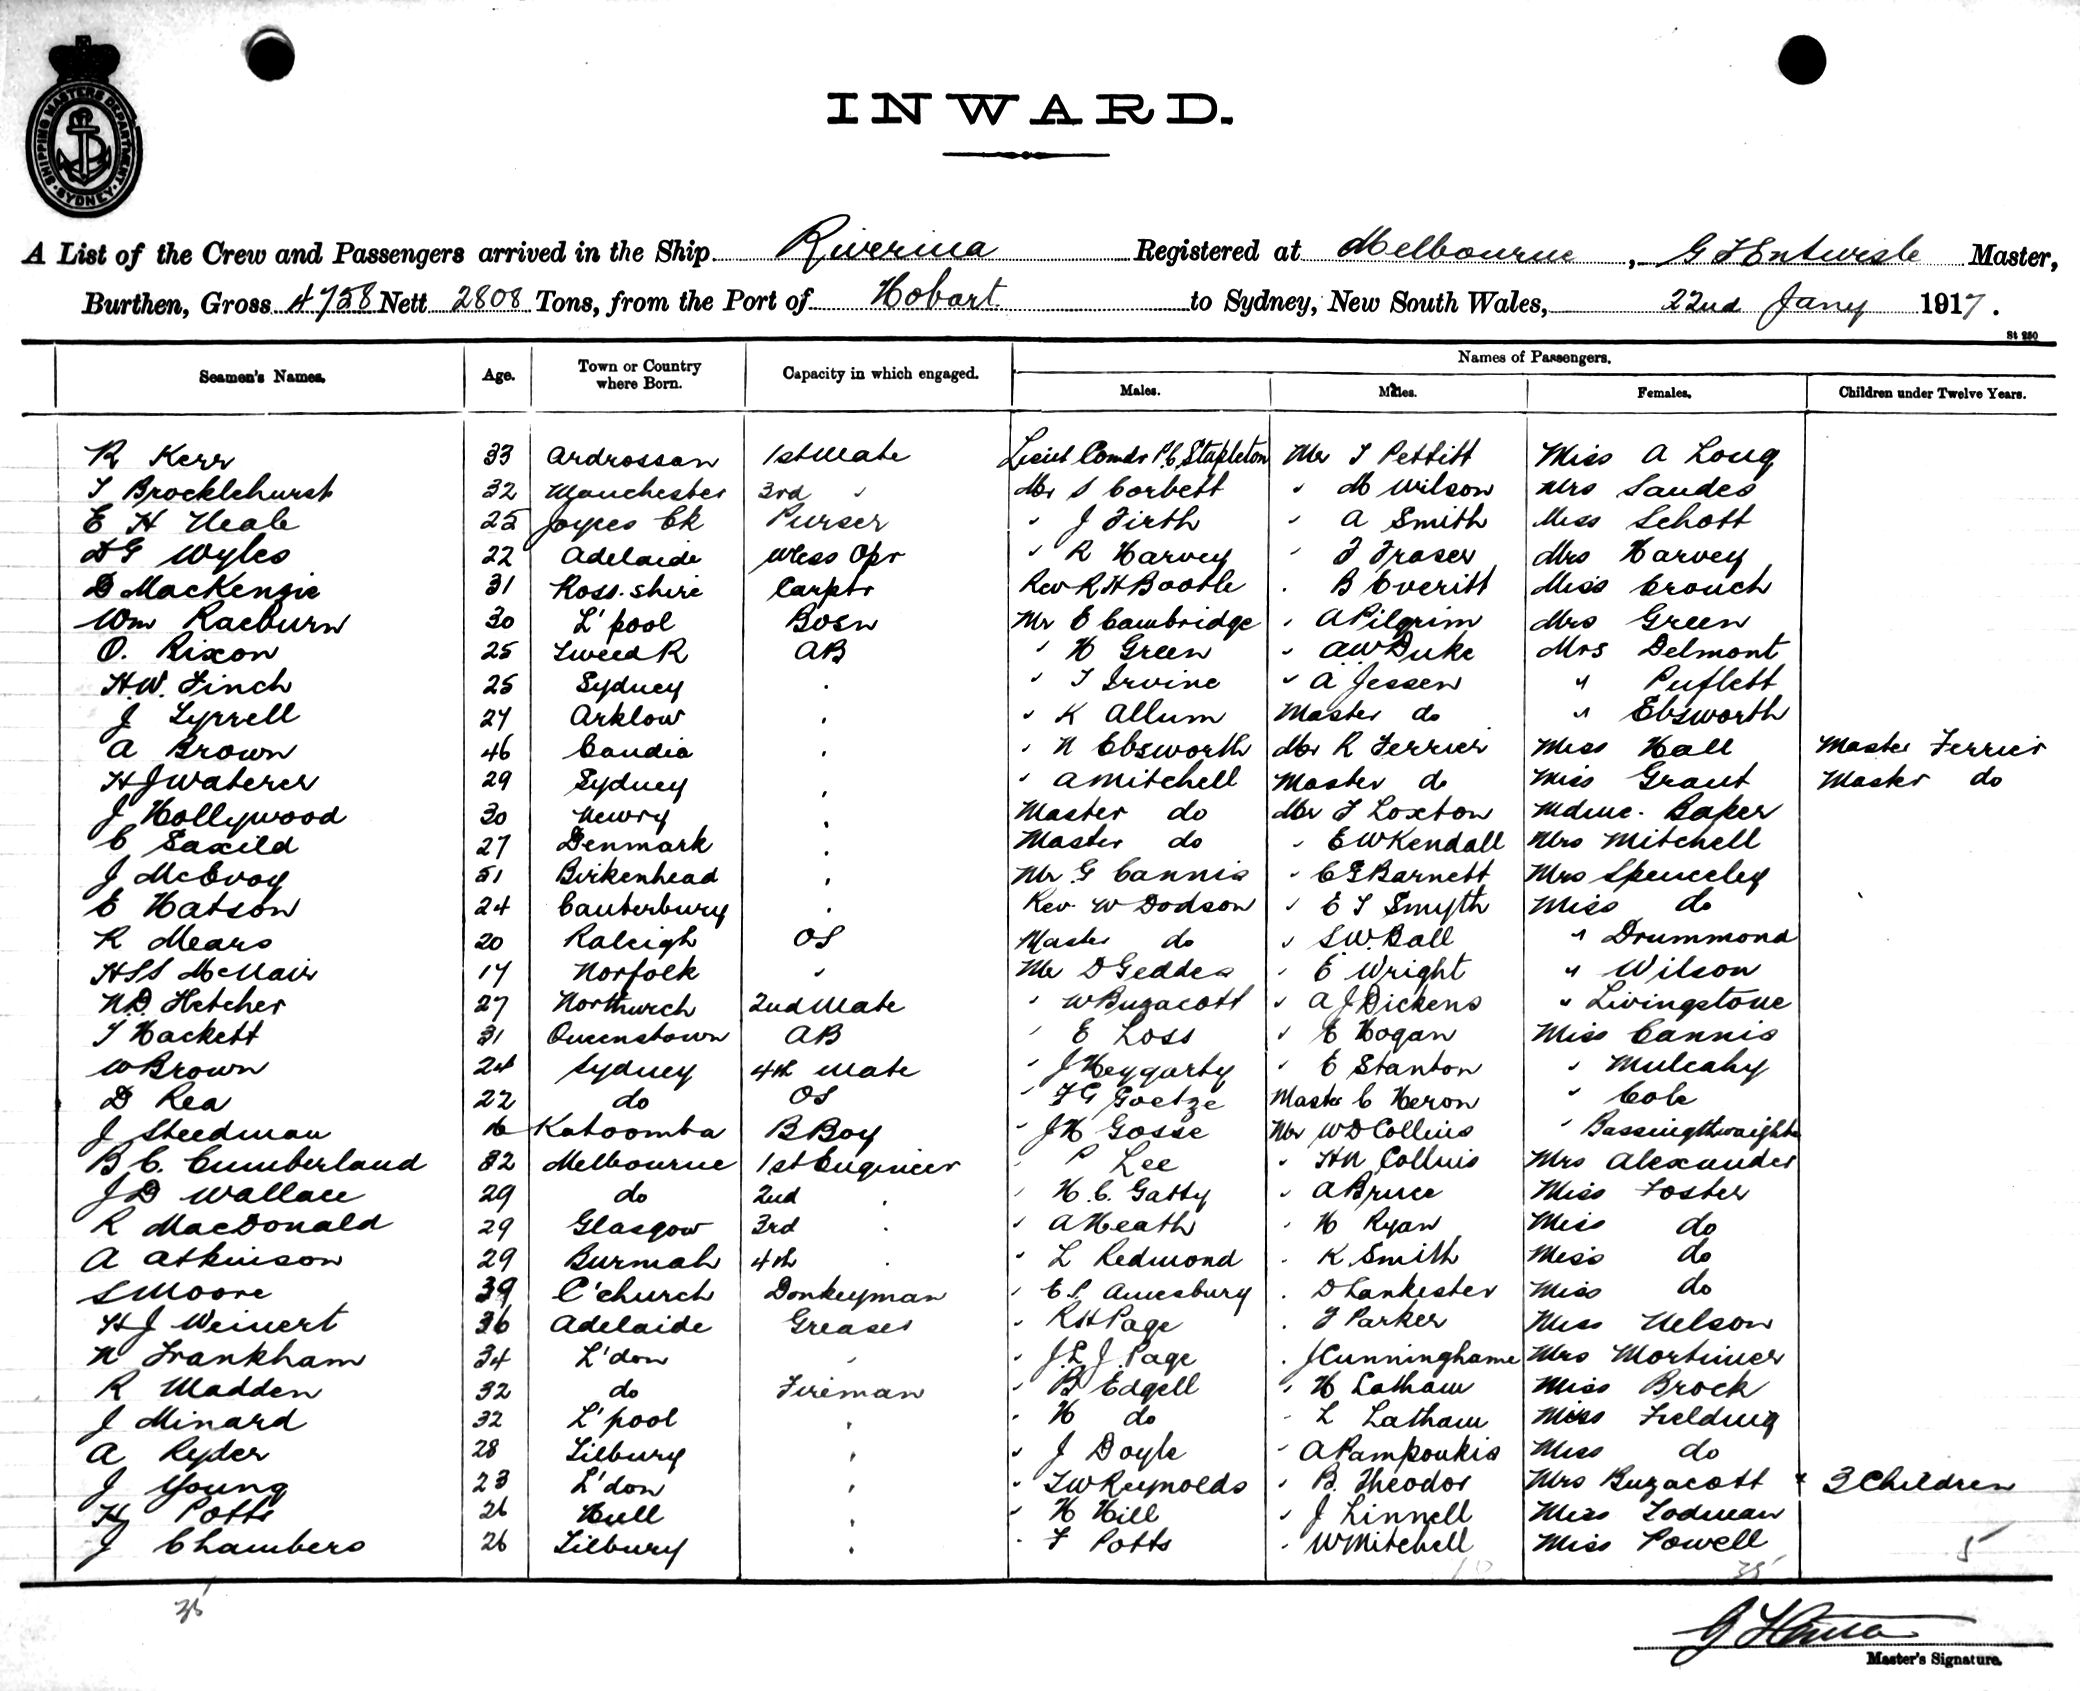 SHIPPING MASTERS DEPARTMENT. SYDNEY
INWARD.
A List of the Crew and Passengers arrived in the Ship Riverina Registered at Melbourne, G F Entwisle Master,
Burthen, Gross 4758 Nett 2808 Tons, from the Port of Hobart to Sydney, New South Wales, 22nd Jany 1917.
St 250
Names of Passengers.
Seamen's Names. Age. Town or Country where Born. Capacity in which engaged. Males. Males. Females. Children under Twelve Years.
R Kerr 33 Ardrossan 1st Mate Lieut Comdr P.C. Stapleton Mr T Pettitt Miss A Long
T Brocklehurst 32 Manchester 3rd " Mr S Corbett " M Wilson Mrs Sandes
E H Neale 25 Joyces Ck Purser " J Firth " A Smith Miss Schott
D G Wyles 22 Adelaide Wless Opr " R Harvey " F Fraser Mrs Harvey
D MacKenzie 31 Ross.shire Carptr Rev R H Bootle " B Everitt Miss Crouch
Wm Raeburn 30 L'pool Bosn Mr E Cambridge " A Pilgrim Mrs Green
O. Rixon 25 Tweed R AB " H Green " A W Duke Mrs Delmont
H.W. Finch 25 Sydney " " T Irvine " A Jessen " Puflett
J Tyrrell 27 Arklow " " K Allum Master do " Ebsworth
A Brown 46 Candia " " N Ebsworth Mr R Ferrier Miss Hall Master Ferrier
H J Waterer 29 Sydney " " A Mitchell Master do Miss Grant Master do
J Hollywood 30 Newry " Master do Mr F Loxton Mdme. Baker
C Saxild 27 Denmark " Master do " E W Kendall Mrs Mitchell
J McEvoy 51 Birkenhead " Mr G Cannis " C G Barnett Mrs Spenceley
E Hatson 24 Canterbury " Rev W Dodson " E T Smyth Miss do
R Mears 20 Raleigh OS Master do " S.W. Ball " Drummond
H S S McNair 17 Norfolk " Mr D Geddes " E Wright " Wilson
N.D. Fletcher 27 Northwich 2nd Mate " W Buzacott " A J Dickens " Livingstone
T Hackett 31 Queenstown AB " E Loss " E Hogan Miss Cannis
W Brown 24 Sydney 4th Mate " J Heggarty " E Stanton " Mulcahy
D Rea 22 do OS " F G Goetze Master C Heron " Cole
J Steedman 16 Katoomba B Boy " J H Gosse Mr W D Collins " Bassingthwaighte
B C. Cumberland 32 Melbourne 1st Engineer " P Lee " H N Collins Mrs Alexander
J D Wallace 29 do 2nd " " H.C. Gatty " A Bruce Miss Foster
R MacDonald 29 Glasgow 3rd " " A Heath " H Ryan Miss do
A Atkinson 29 Burmah 4th " " L Redmond " K Smith Miss do
S Moore 39 C'church Donkeyman " E.P. Amesbury " D Lankester Miss do
H J Weinert 36 Adelaide Greaser " R H Page " F Parker Miss Nelson
N Frankham 34 L'don " " J.L.J. Page " J Cunninghame Mrs Mortimer
R Madden 32 do Fireman " B Edgell " H Latham Miss Brock
J Minard 32 L'pool " " H do " L Latham Miss Fielding
A Ryder 28 Tilbury " " J Doyle " A Pampoukis Miss do
J Young 23 L'don " " T W Reynolds " B. Theodor Mrs Buzacott & 3 Children
H Potts 26 Hull " " H Hill " J Linnell Miss Lodman
J Chambers 26 Tilbury " " F Potts " W Mitchell Miss Powell 5
35 35
Master's Signature.